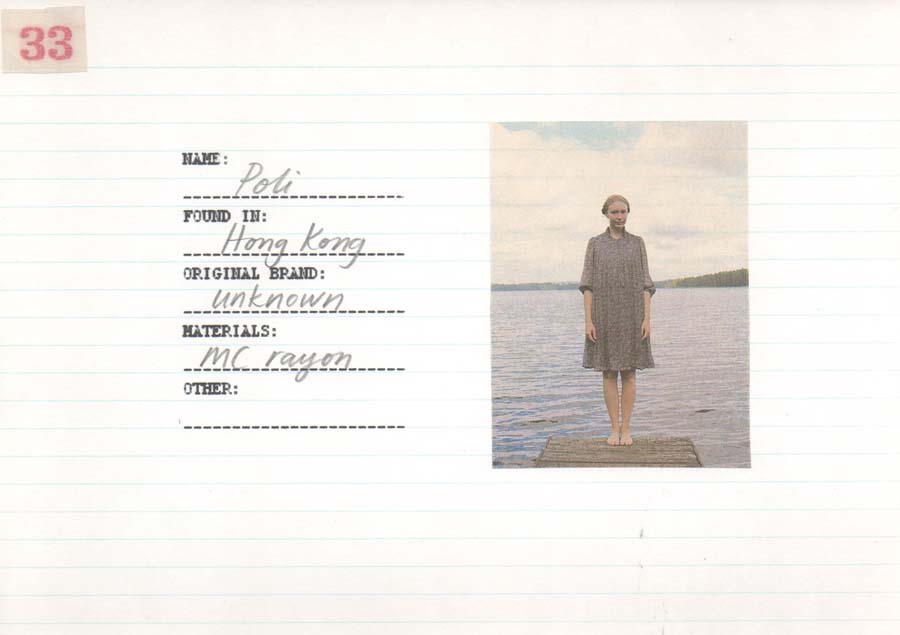 33
NAME:
Poli
FOUND IN:
Hong Kong
ORIGINAL BRAND:
unknown
MATERIALS:
MC rayon
OTHER: